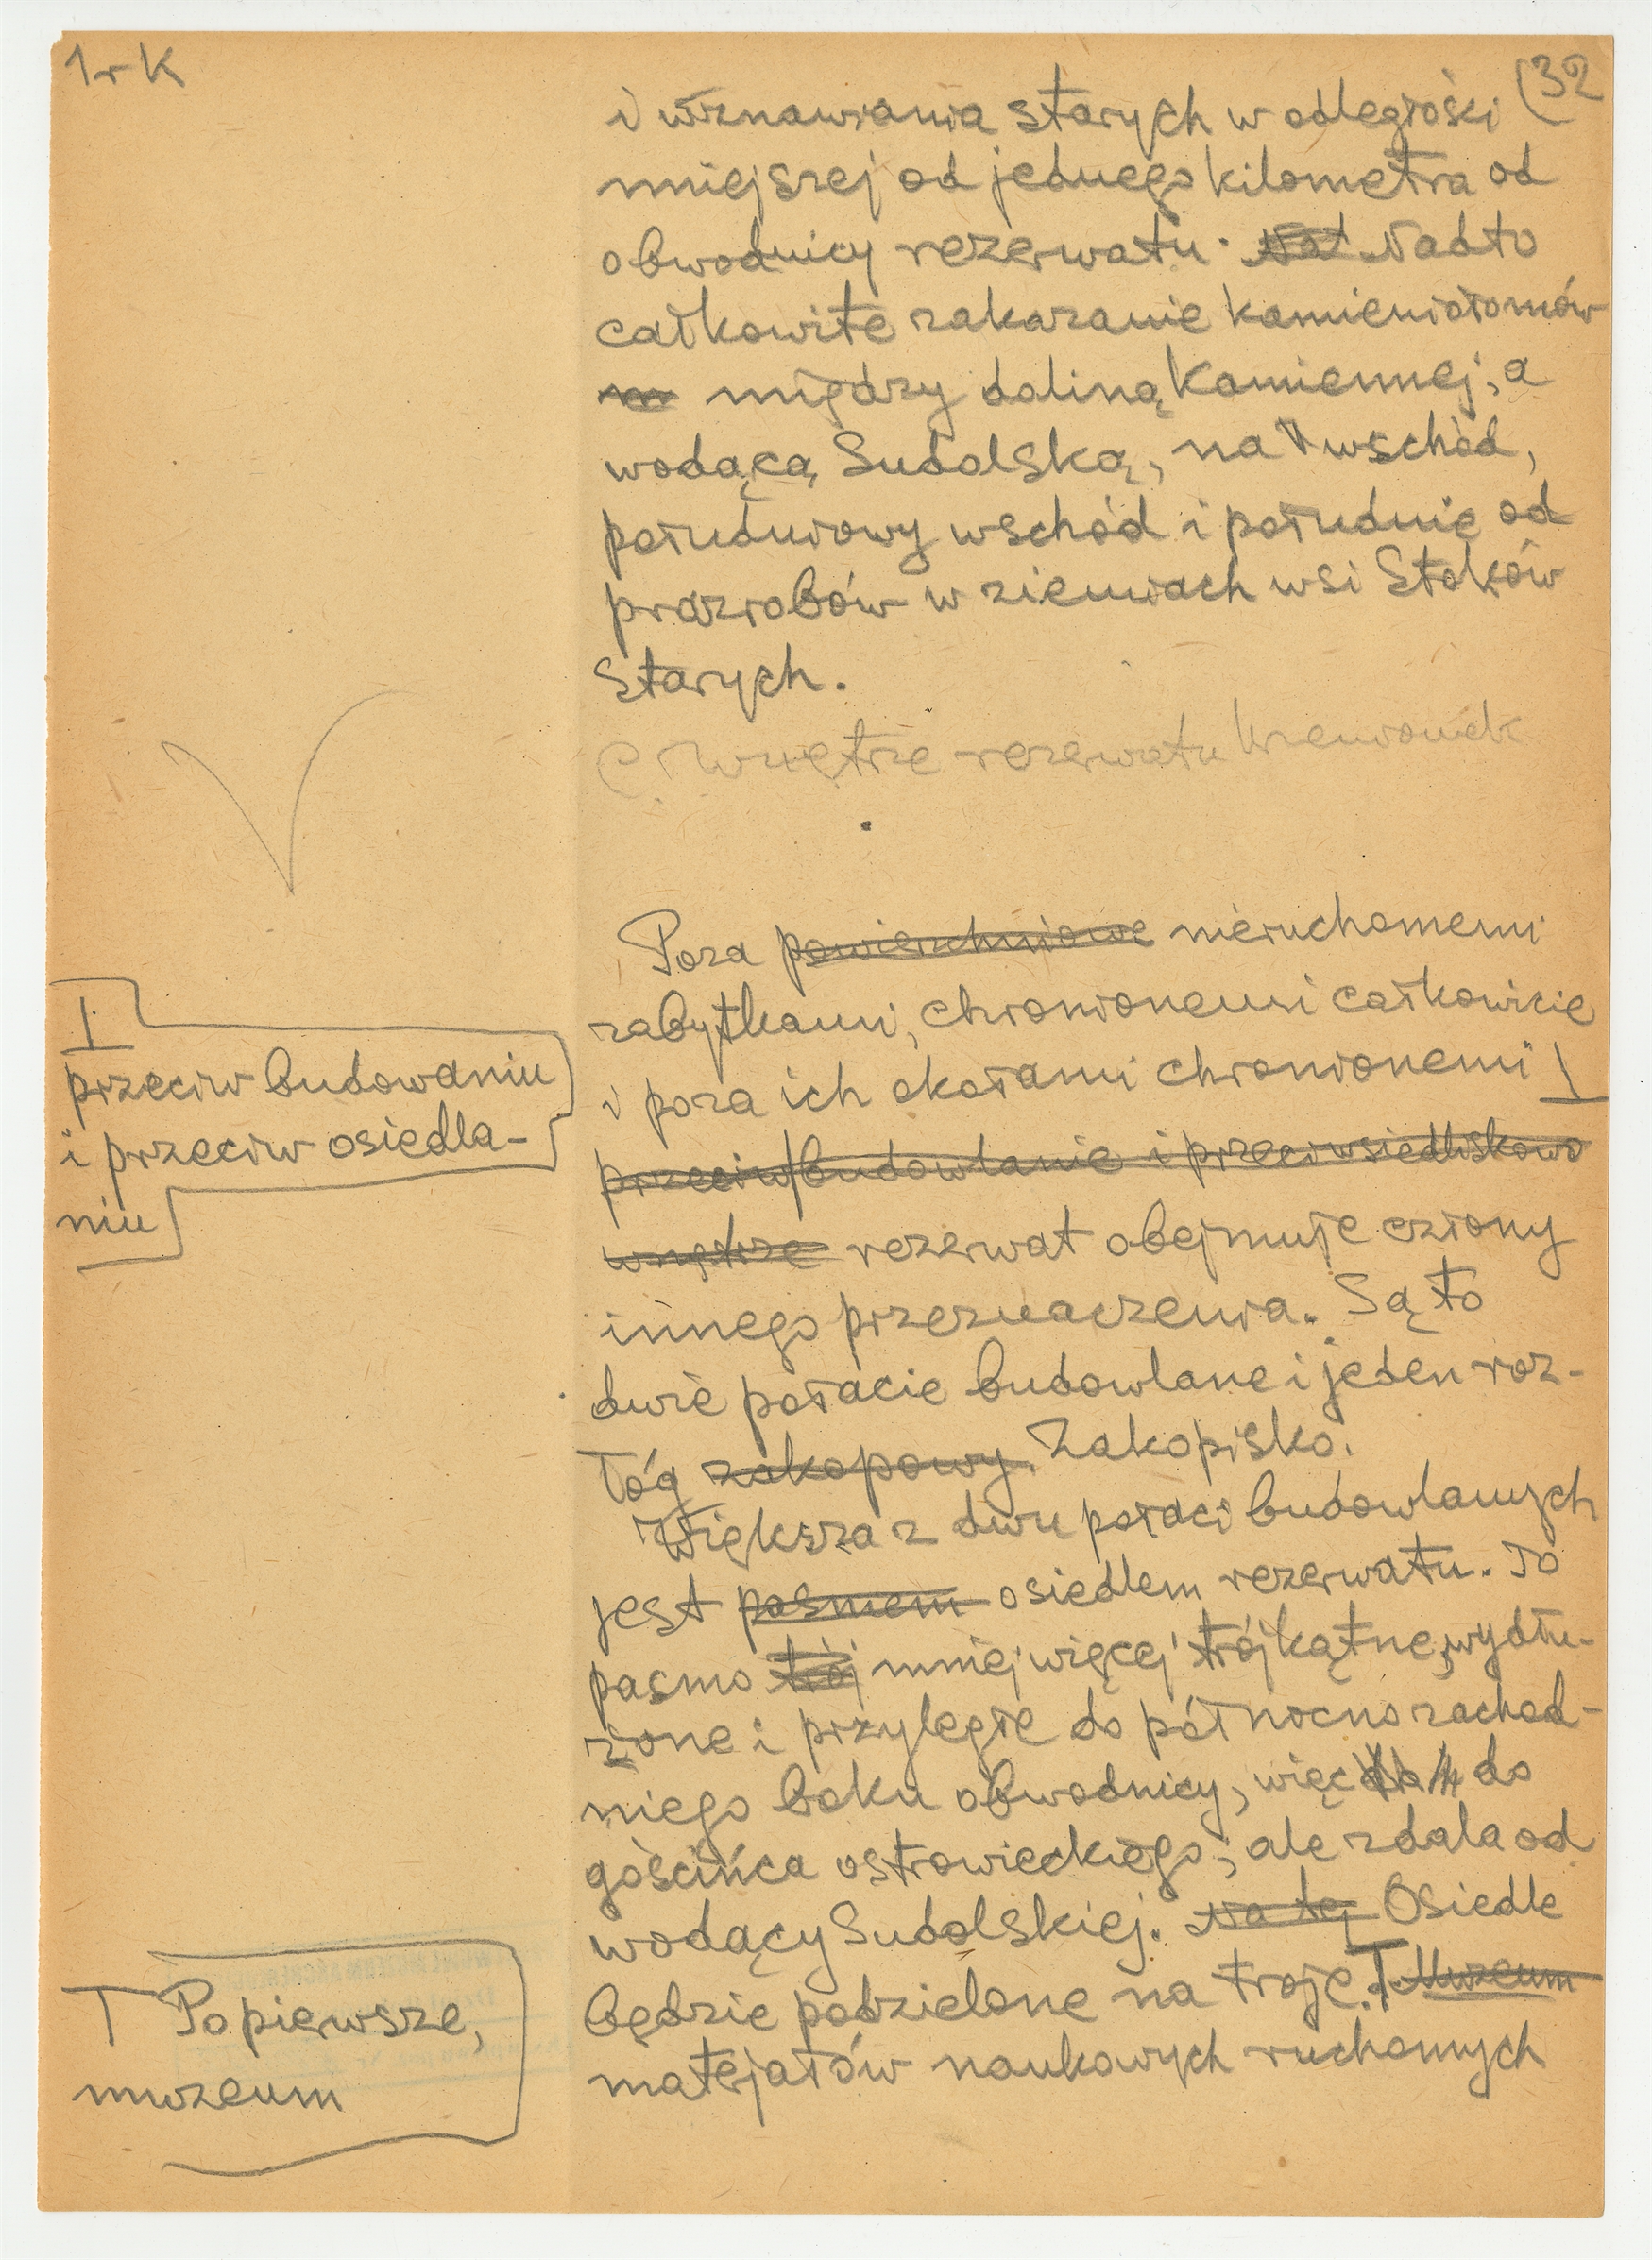 1rk
(32
i wznawiania starych w odległości
mniejszej od jednego kilometra od
obwodnicy rezerwatu. Nat Nadto
całkowite zakazanie kamieniołomów
między doliną Kamiennej, a
wodącą Sudolską, na wschód,
południowy wschód i południe od
prazrobów w ziemiach wsi Stoków
Starych.
C. Wnętrze rezerwatu krzemionek
Poza powierzchniowe nieruchomemi
zabytkami, chronionemi całkowicie
i poza ich okołami chronionemi I
przeciw budowlanie i przeciwsiedliskowo
wnętrze rezerwat obejmuje człony
innego przeznaczenia. Są to
dwie połacie budowlane i jeden roz-
łóg zakopowy. Zakopisko.
Większa z dwu połaci budowlanych
jest pasmem osiedlem rezerwatu. To
pasmo trój mniej więcej trójkątne, wydłu-
żone i przyległe do północno zachod-
niego boku obwodnicy, więc do
gościńca ostrowieckiego, ale zdala od
wodący Sudolskiej. Na tej Osiedle
będzie podzielone na troje. T Muzeum
materjałów naukowych ruchomych
I
przeciw budowaniu
i przeciw osiedla-
niu
T Popierwsze,
muzeum